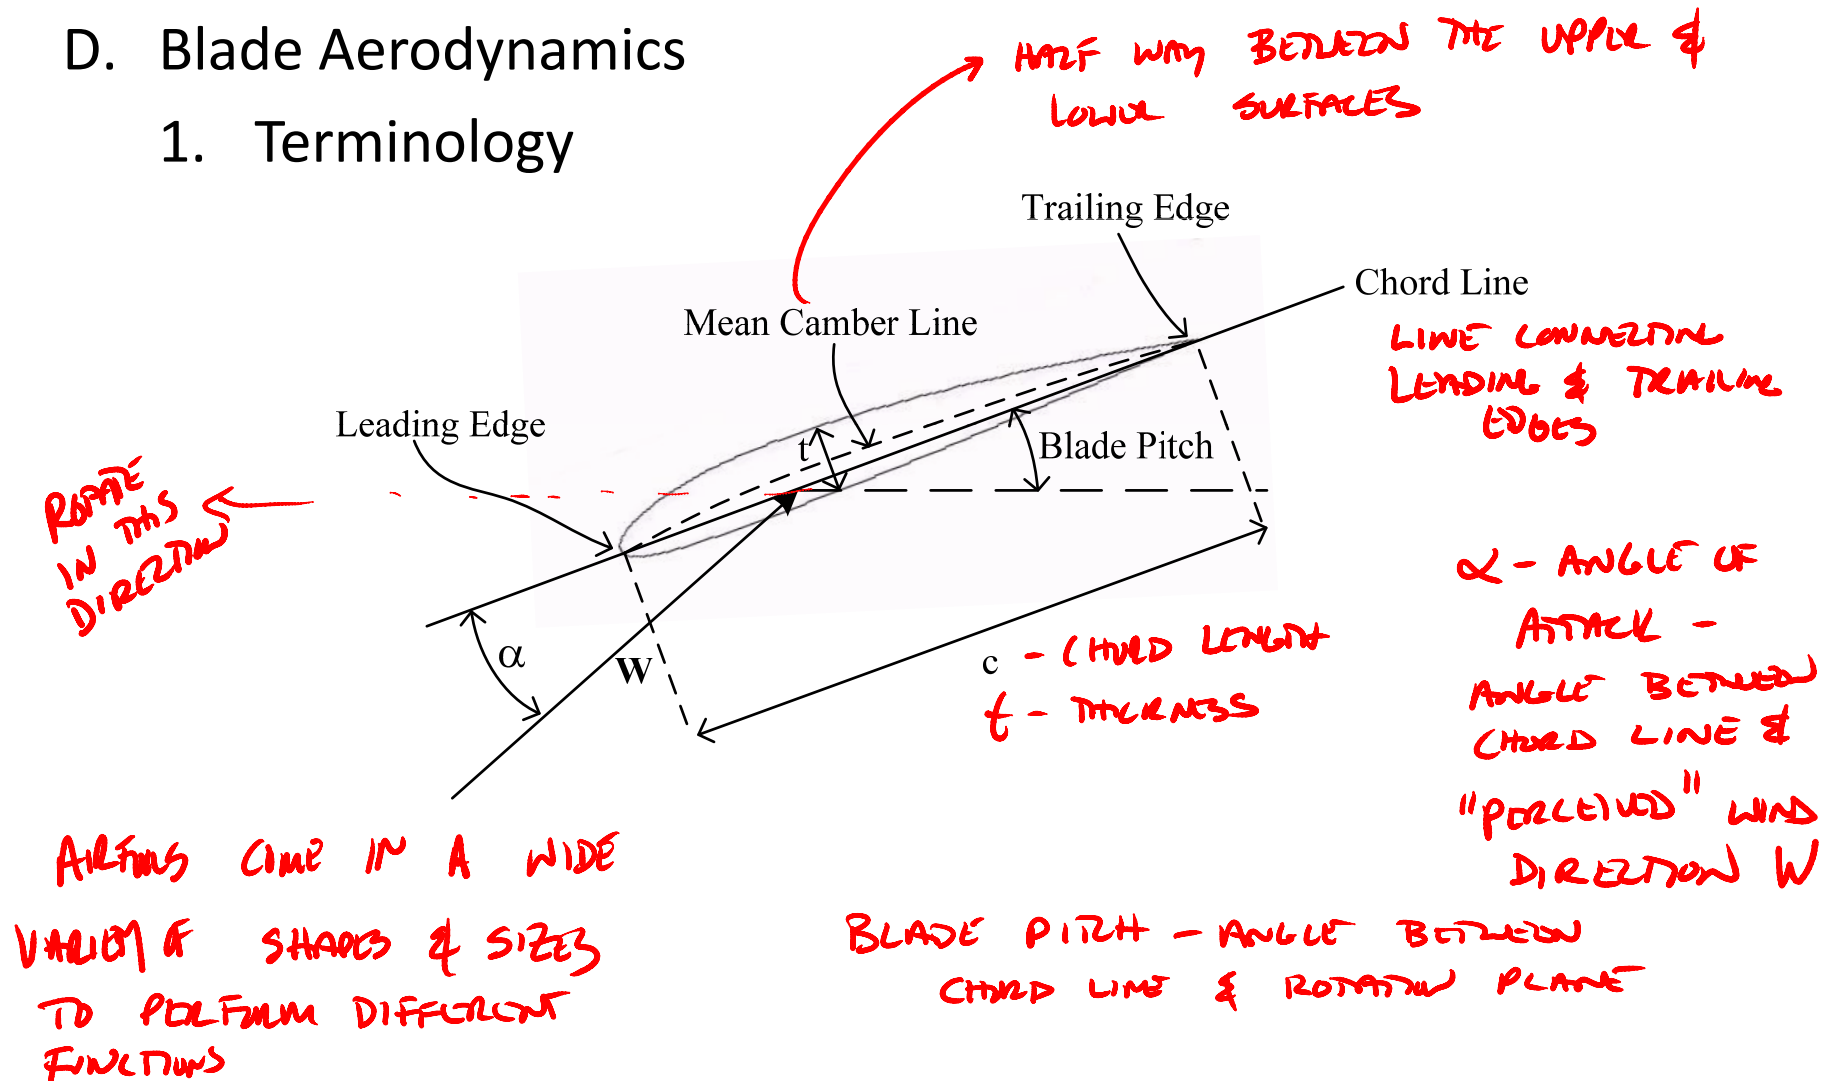 D. Blade Aerodynamics
1. Terminology
HALF WAY BETWEEN THE UPPER &
LOWER SURFACES
Trailing Edge
Chord Line
Mean Camber Line
LINE CONNECTING
LEADING & TRAILING
EDGES
Leading Edge
t
Blade Pitch
ROTATE
IN THIS
DIRECTION
α
W
c - CHORD LENGTH
t - THICKNESS
α - ANGLE OF
ATTACK -
ANGLE BETWEEN
CHORD LINE &
"PERCEIVED" WIND
DIRECTION W
AIRFOILS COME IN A WIDE
VARIETY OF SHAPES & SIZES
TO PERFORM DIFFERENT
FUNCTIONS
BLADE PITCH - ANGLE BETWEEN
CHORD LINE & ROTATION PLANE